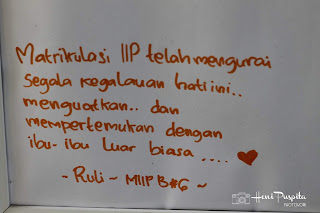 Matrikulasi IIP telah mengurai
segala kegalauan hati ini..
menguatkan.. dan
mempertemukan dengan
ibu-ibu luar biasa ....
- Ruli ~ MIIP B#6 ~
Heni Puspita